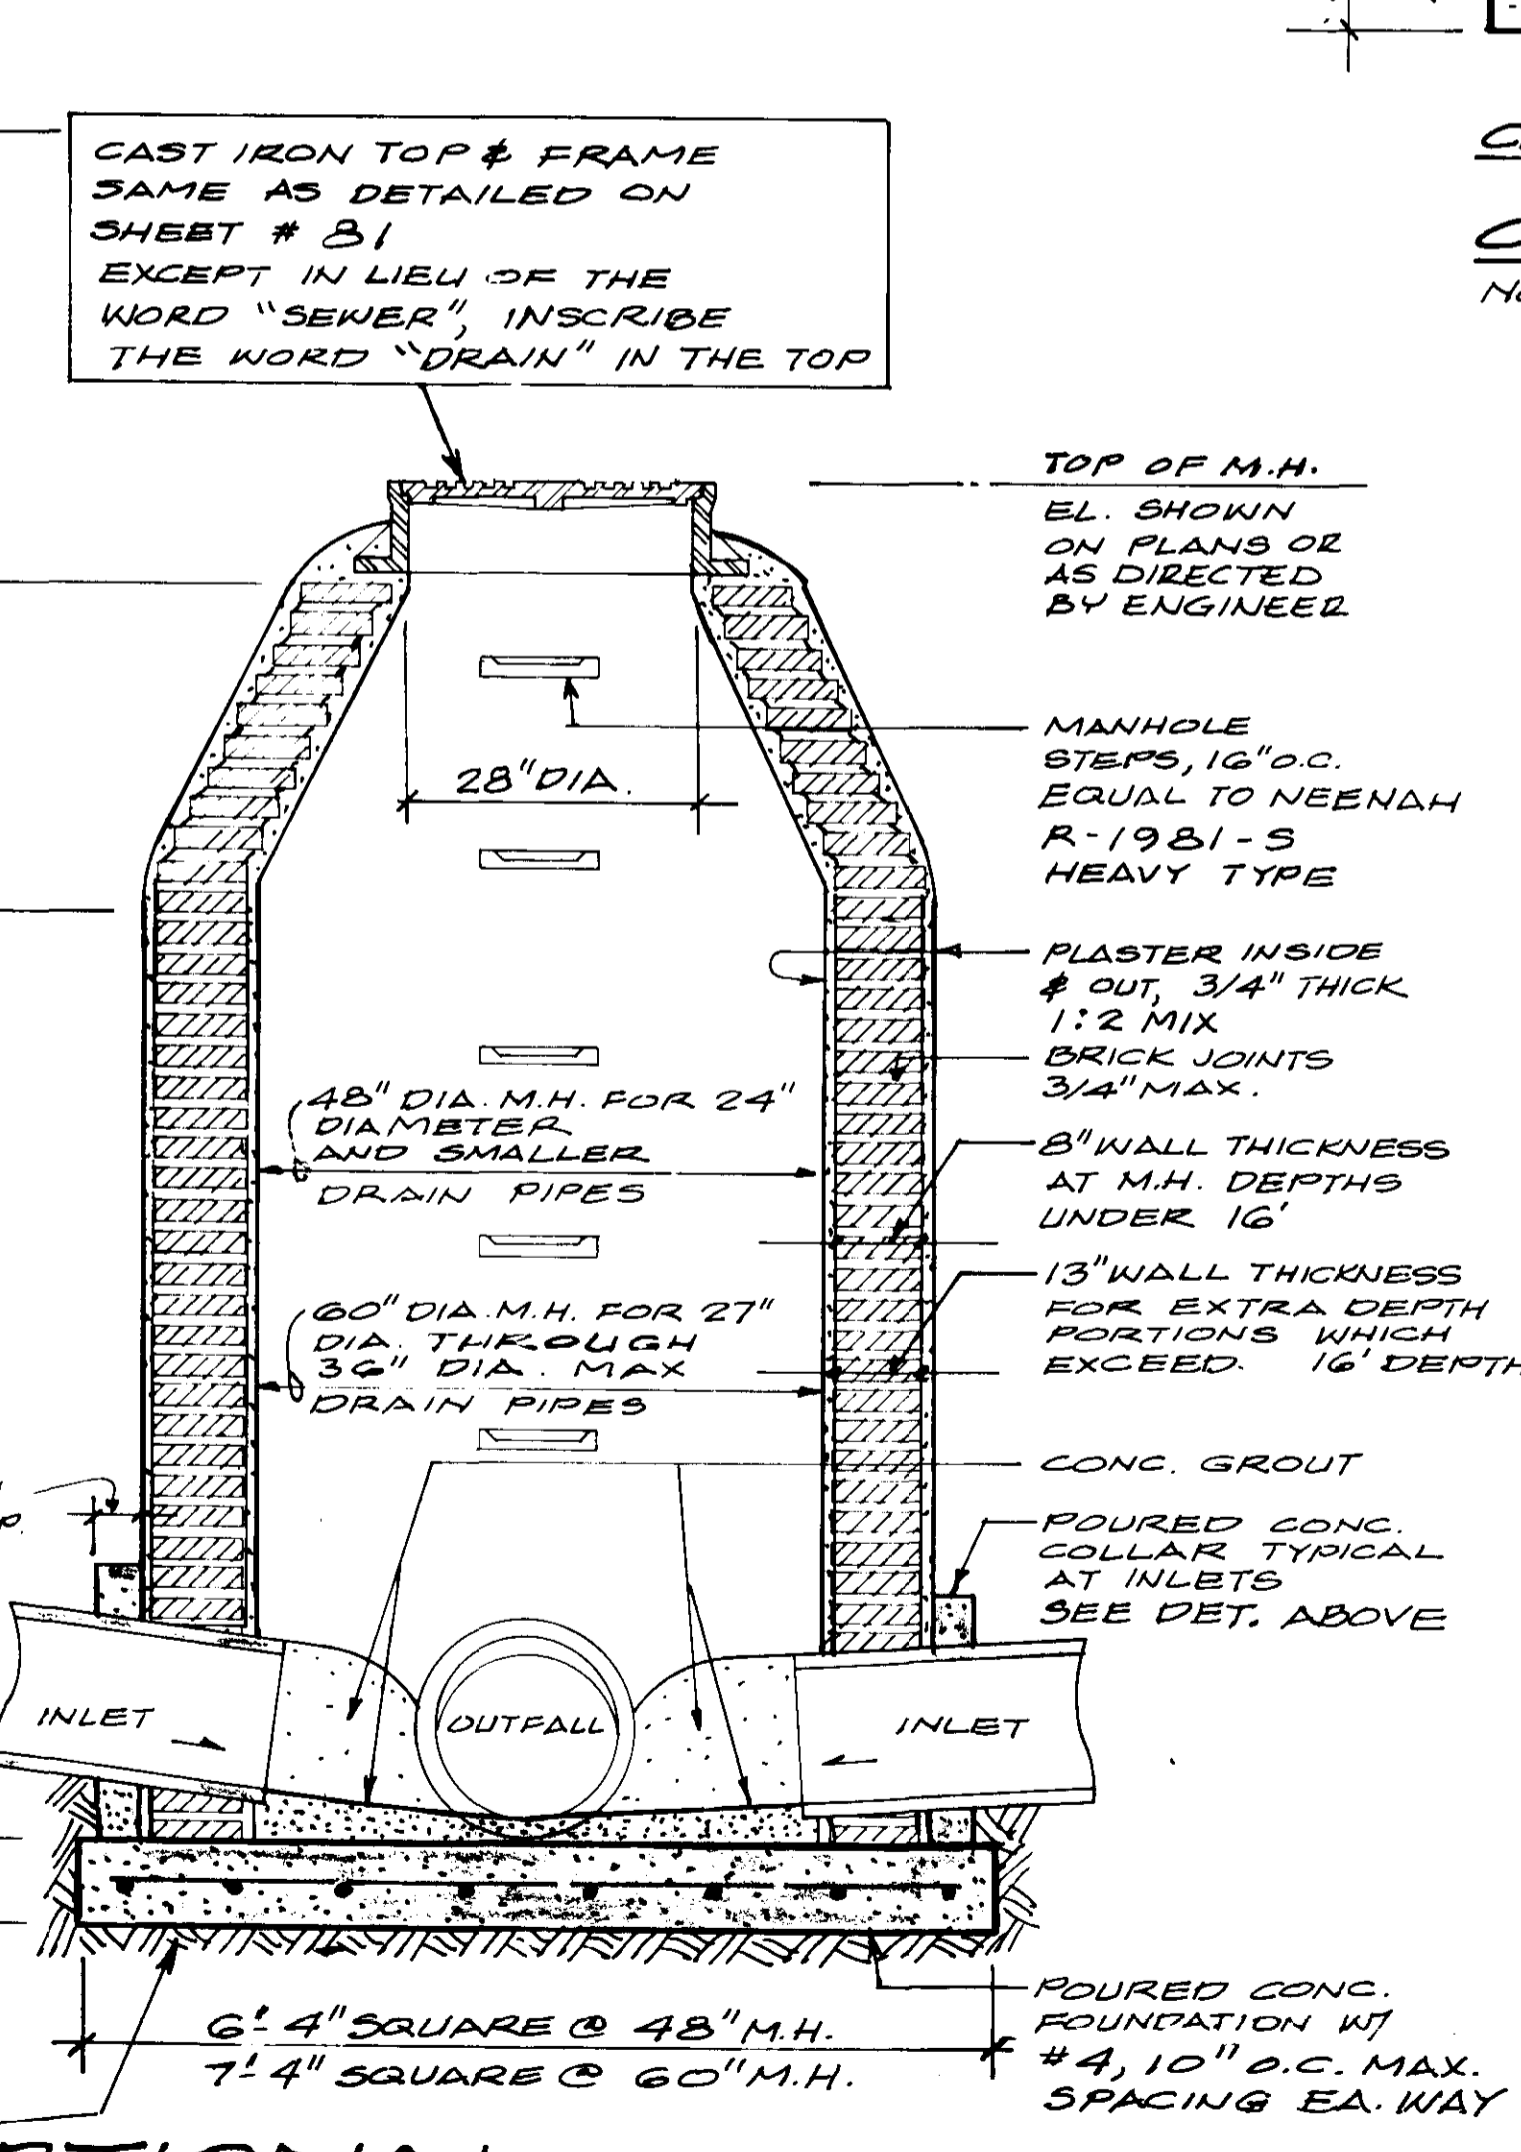 CAST IRON TOP & FRAME
SAME AS DETAILED ON
SHEET # 81
EXCEPT IN LIEU OF THE
WORD "SEWER", INSCRIBE
THE WORD "DRAIN" IN THE TOP
TOP OF M.H.
EL. SHOWN
ON PLANS OR
AS DIRECTED
BY ENGINEER
MANHOLE
STEPS, 16" O.C.
EQUAL TO NEENAH
R-1981-S
HEAVY TYPE
28" DIA.
PLASTER INSIDE
& OUT, 3/4" THICK
1:2 MIX
BRICK JOINTS
3/4" MAX.
48" DIA. M.H. FOR 24"
DIAMETER
AND SMALLER
DRAIN PIPES
8" WALL THICKNESS
AT M.H. DEPTHS
UNDER 16'
60" DIA. M.H. FOR 27"
DIA. THROUGH
36" DIA. MAX
DRAIN PIPES
13" WALL THICKNESS
FOR EXTRA DEPTH
PORTIONS WHICH
EXCEED. 16' DEPTH
CONC. GROUT
POURED CONC.
COLLAR TYPICAL
AT INLETS
SEE DET. ABOVE
INLET
OUTFALL
INLET
6'-4" SQUARE @ 48" M.H.
7'-4" SQUARE @ 60" M.H.
POURED CONC.
FOUNDATION W/
#4, 10" O.C. MAX.
SPACING EA. WAY